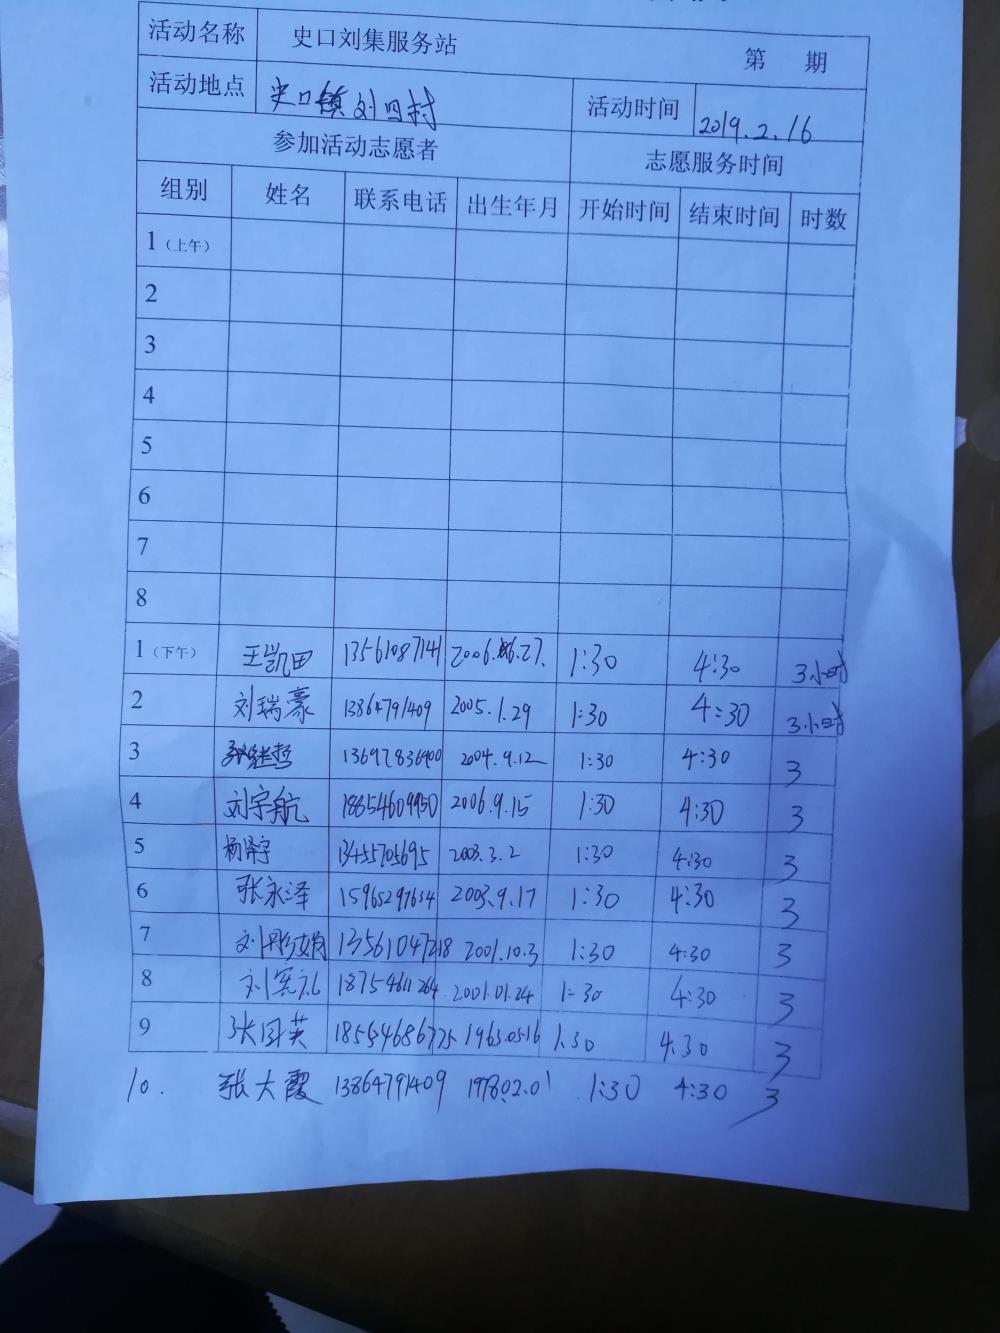 活动名称 史口刘集服务站 第 期
活动地点 史口镇刘 村 活动时间 2019.2.16
参加活动志愿者 志愿服务时间
组别 姓名 联系电话 出生年月 开始时间 结束时间 时数
1（上午）
2
3
4
5
6
7
8
1（下午） 王凯田 13561087141 2006.06.27. 1:30 4:30 3小时
2 刘瑞豪 13864791409 2005.1.29 1:30 4:30 3小时
3 13697836900 2004.9.12 1:30 4:30 3
4 刘宇航 18854609950 2006.9.15 1:30 4:30 3
5 杨泽宇 13455705695 2003.3.2 1:30 4:30 3
6 张永泽 15965297634 2003.9.17 1:30 4:30 3
7 刘彤娟 13561047218 2001.10.3 1:30 4:30 3
8 刘宪礼 18754611264 2001.01.24 1:30 4:30 3
9 张国英 18554686775 1963.0516 1:30 4:30 3
10. 张大霞 13864791409 1978.02.01 1:30 4:30 3